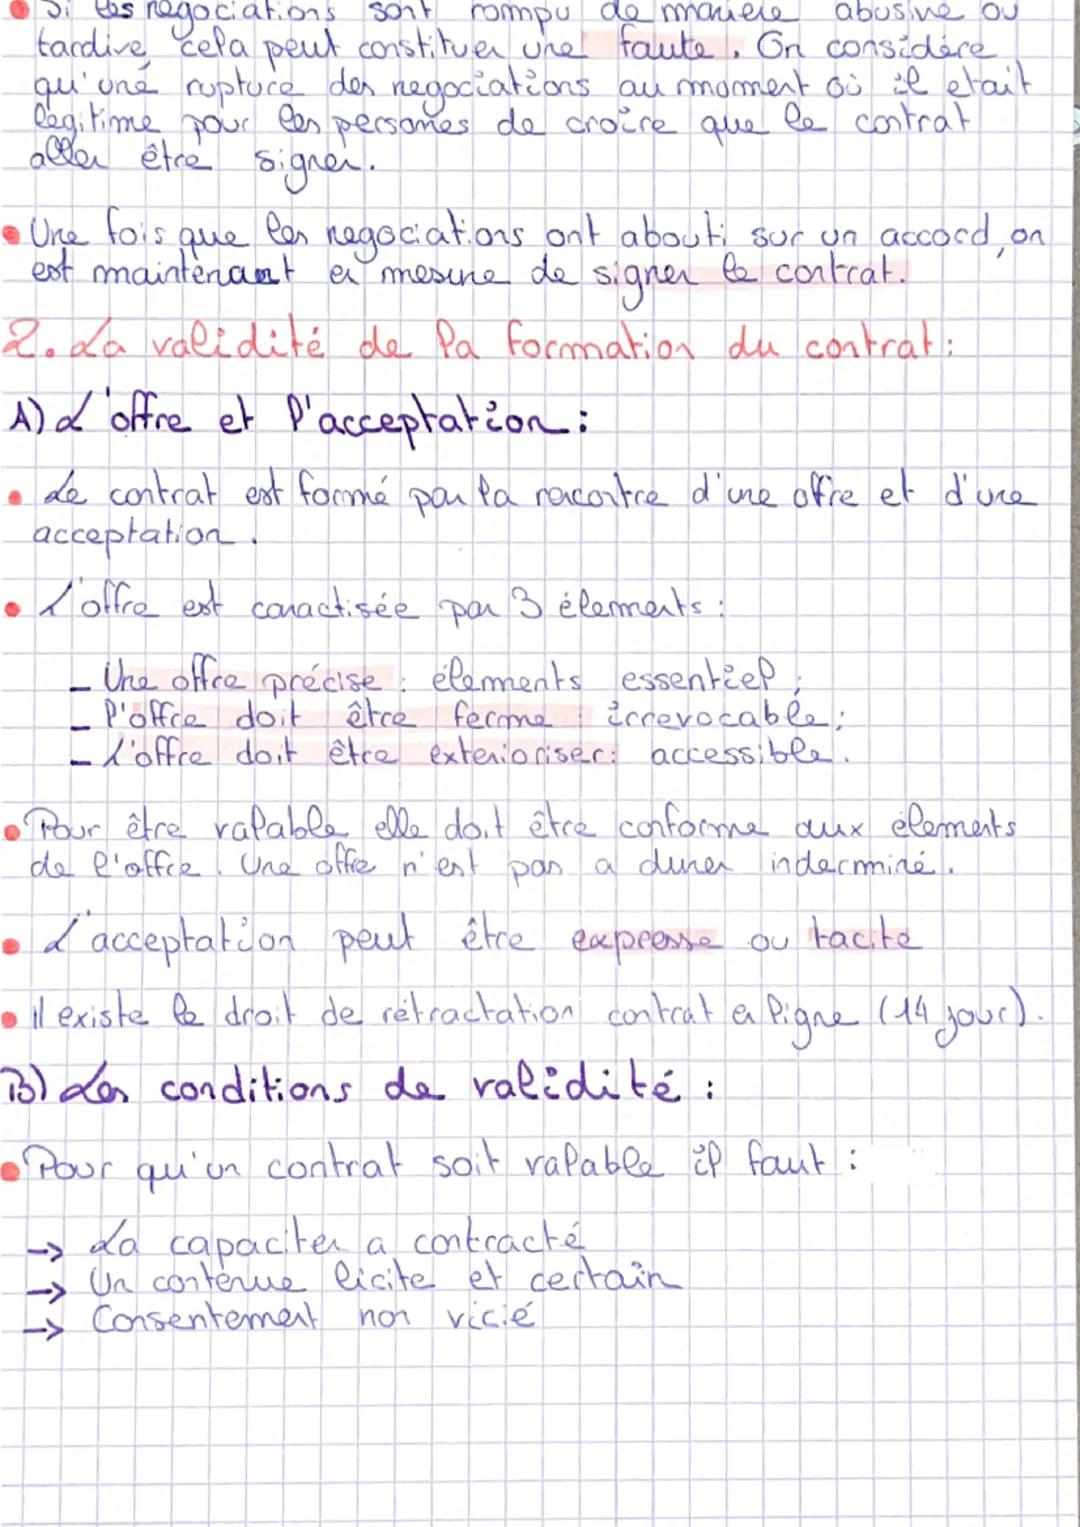 Si les negociations sont rompu de maniere abusive ou
tardive, cela peut constituer une faute. On considère
qu'une rupture des negociations au moment où il etait
legitime pour les personnes de croire que le contrat
aller être signer.
Une fois que les negociations ont abouti sur un accord, on
est maintenant en mesure de signer le contrat.
2. La validité de la formation du contrat :
A) L'offre et l'acceptation :
Le contrat est formé par la rencontre d'une offre et d'une
acceptation.
L'offre est caractisée par 3 élements :
- Une offre précise : élements essentiel ;
- l'offre doit être ferme : irrevocable ;
- L'offre doit être exterioriser : accessible.
Pour être valable elle doit être conforme aux élements
de l'offre. Une offre n'est pas a durer indermine.
L'acceptation peut être expresse ou tacite
il existe le droit de rétractation contrat en ligne (14 jour).
B) Les conditions de validité :
Pour qu'un contrat soit valable il faut :
→ La capaciter a contracté
→ Un contenue licite et certain
→ Consentement non vicié